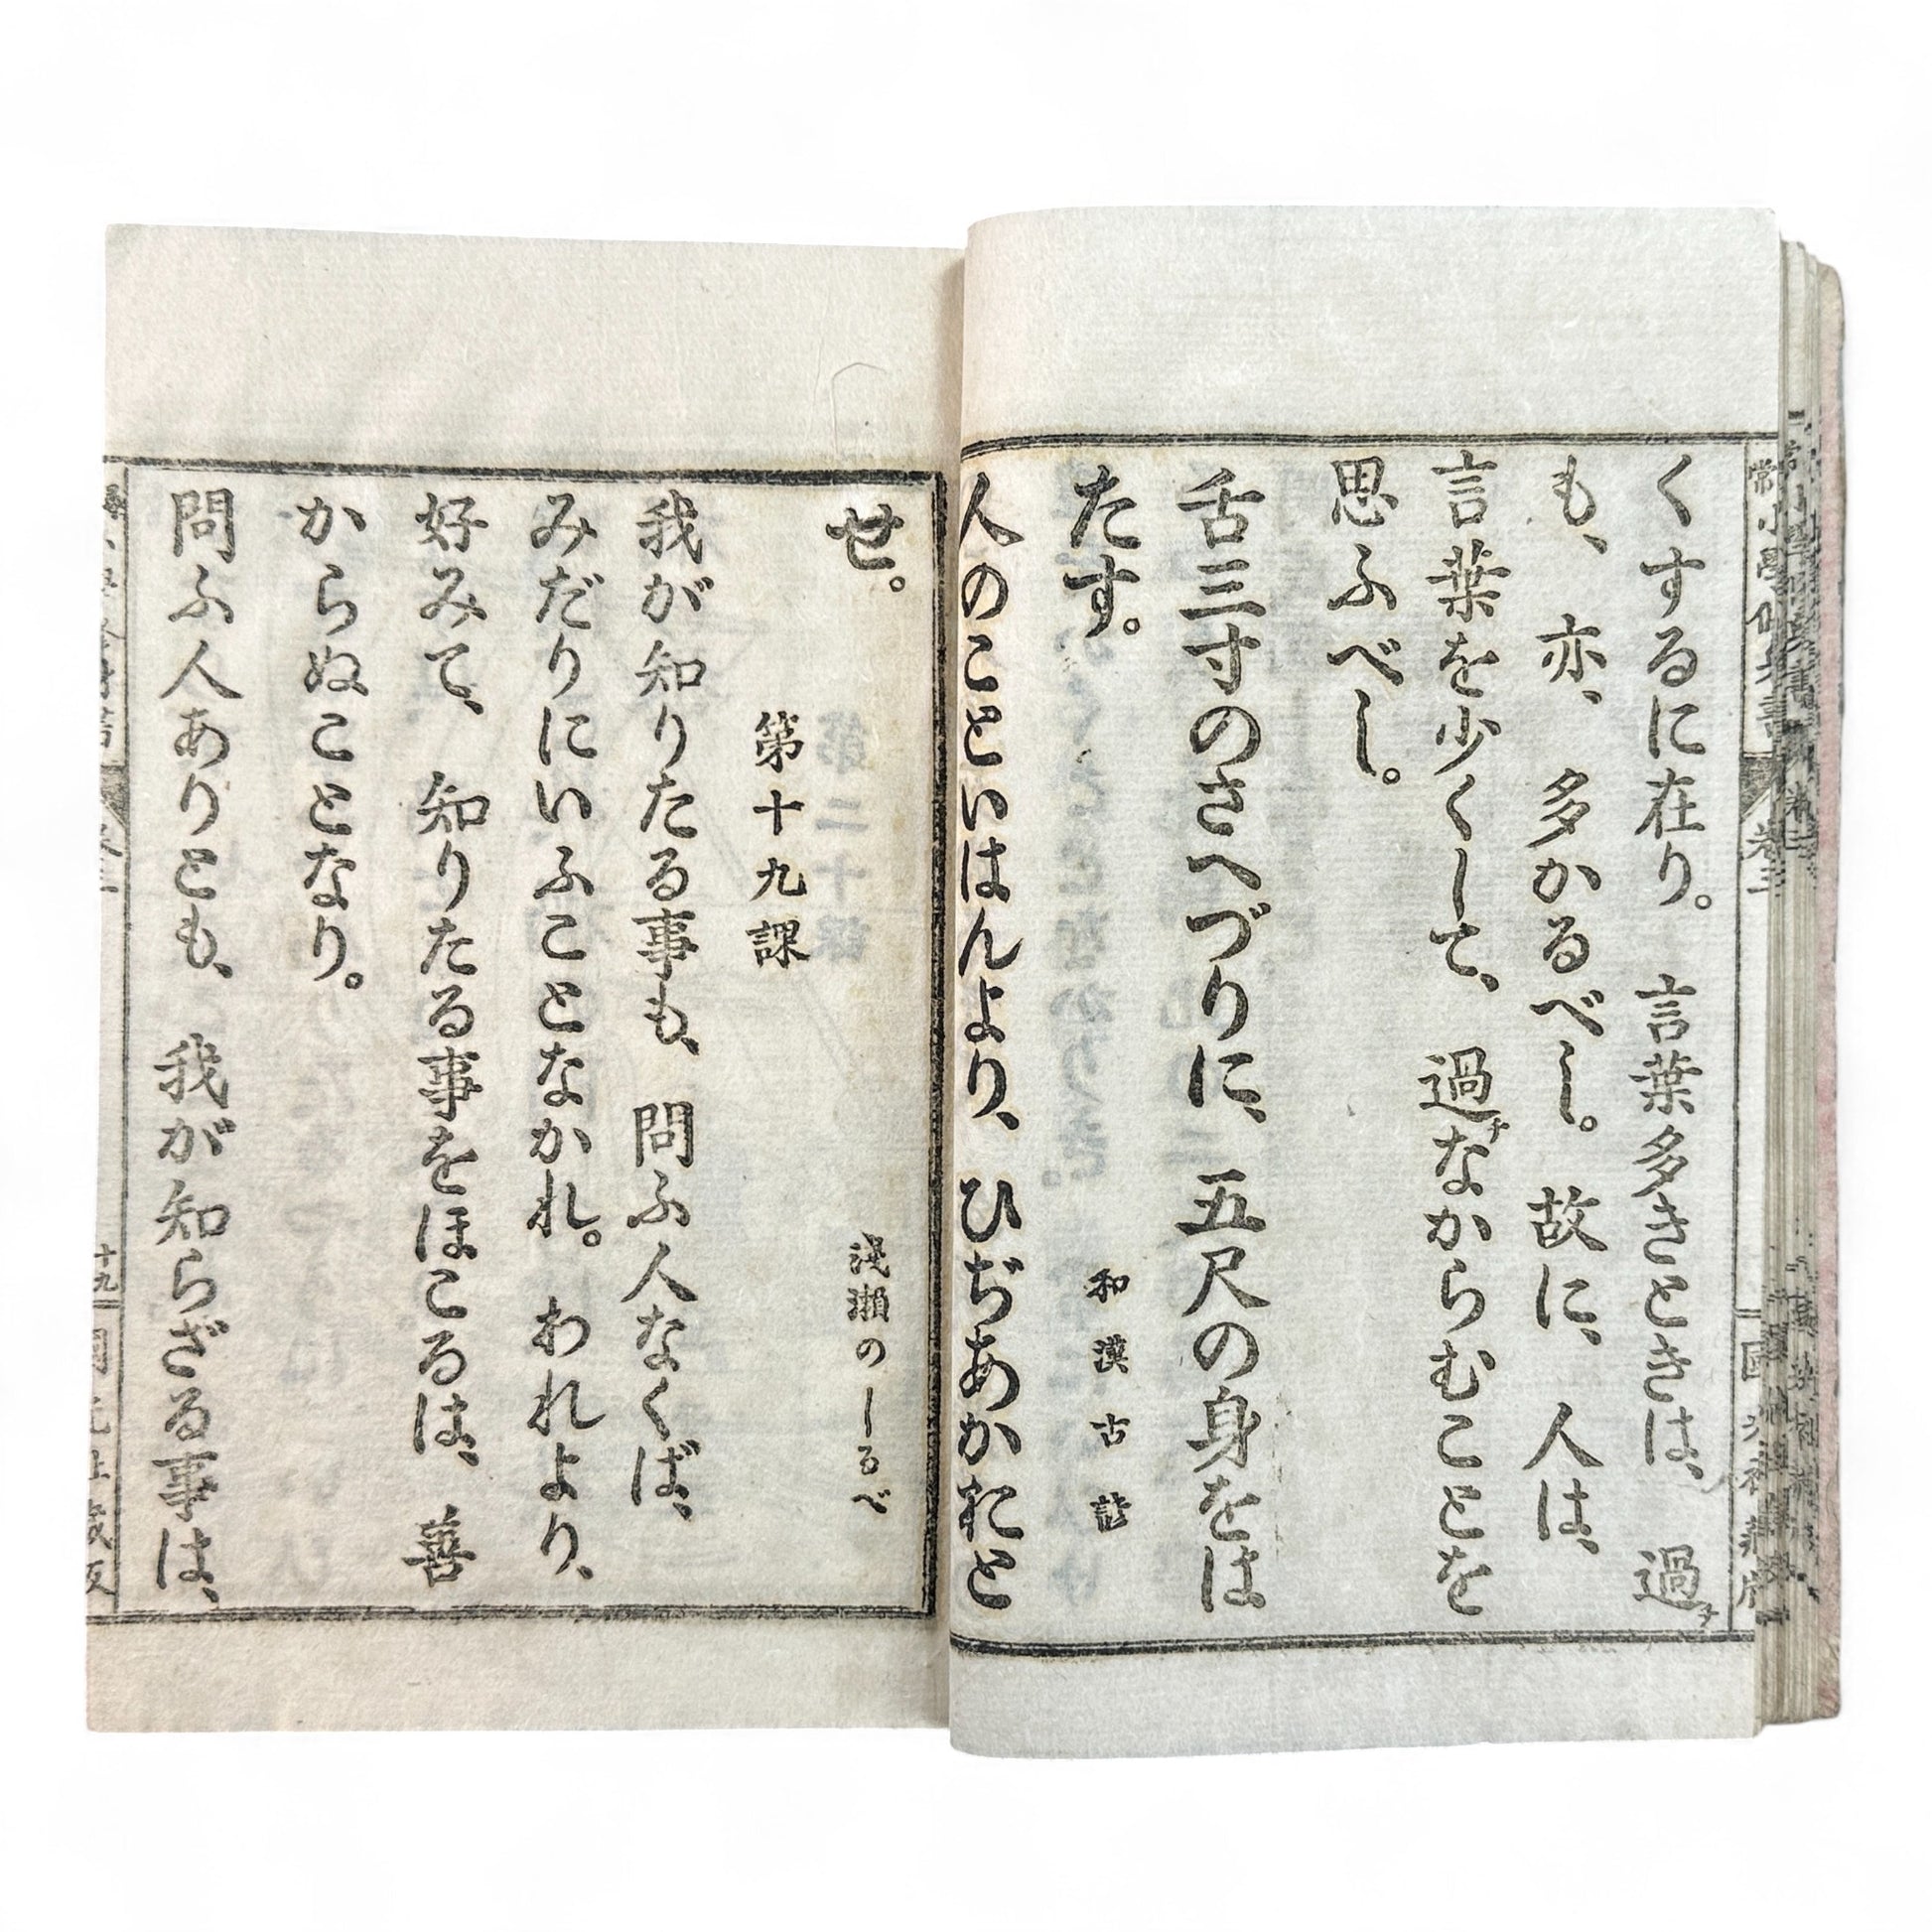 くするに在り。 言葉多きときは、 過チ
も、 亦、 多かるべし。 故に、 人は、
言葉を少くして、 過チなからむことを
思ふべし。
舌三寸のさへづりに、 五尺の身をは
たす。
和漢古諺
人のこといはんより、 ひぢあかおと
せ。
浅瀬のしるべ
第十九課
我が知りたる事も、 問ふ人なくば、
みだりにいふことなかれ。 われより、
好みて、 知りたる事をほこるは、 善
からぬことなり。
問ふ人ありとも、 我が知らざる事は、
十九